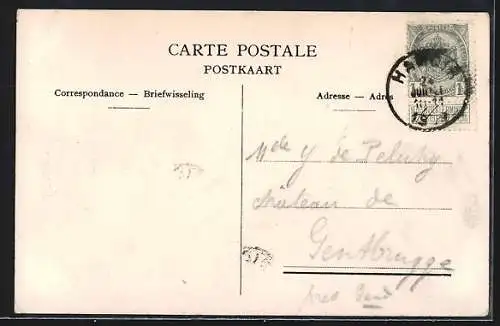 CARTE POSTALE
POSTKAART
Correspondance — Briefwisseling
Adresse — Adres
Y de
Château de
Gentbrugge
près Gand